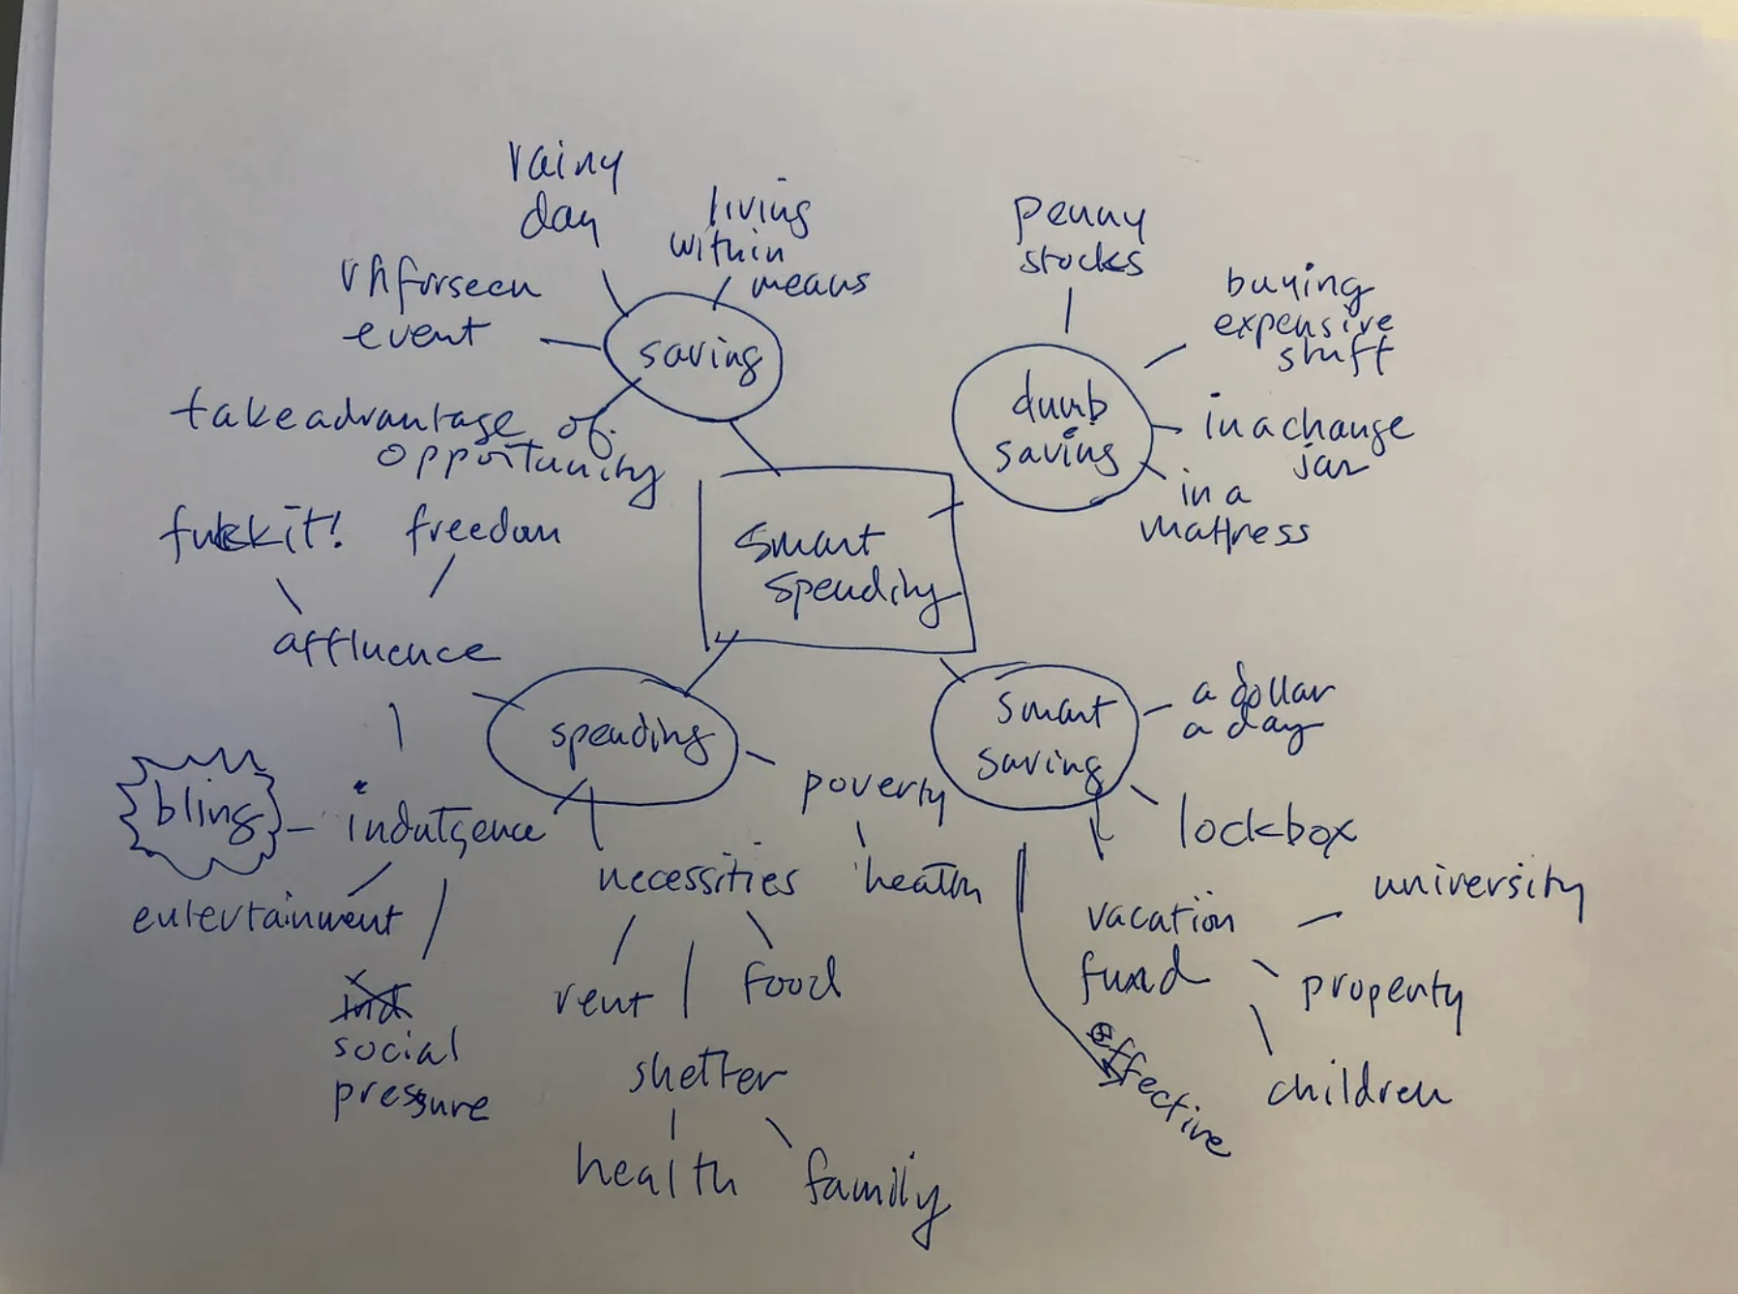 rainy
day
living
within
means
unforseen
event
saving
take advantage of
opportunity
penny
stocks
buying
expensive
stuff
dumb
saving
in a change
jar
in a
mattress
smart
spending
fukkit!
freedom
affluence
spending
bling
indulgence
entertainment
social
pressure
necessities
rent
food
shelter
health
family
poverty
health
smart
saving
a dollar
a day
lockbox
vacation
fund
university
property
children
effective